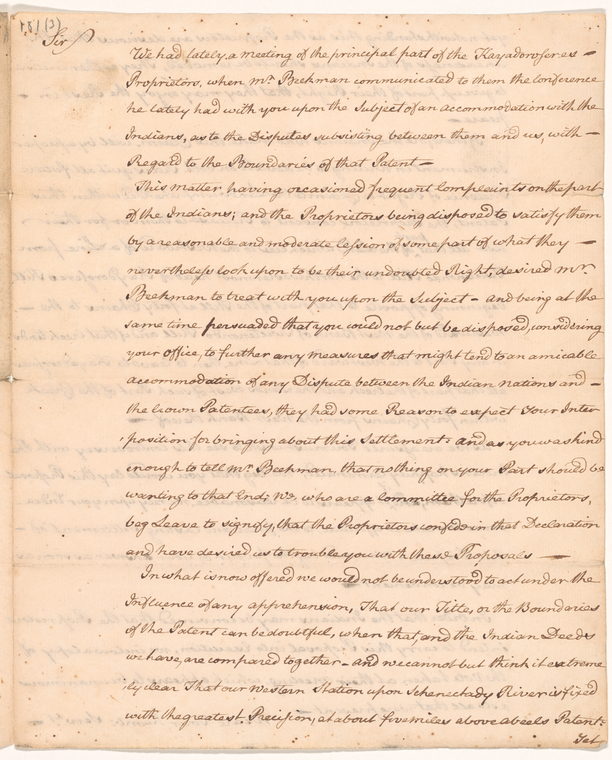 181 (3)
Sir
We had lately a meeting of the principal part of the Kayadoroseres —
Proprietors, when Mr. Beekman communicated to them the Conference
he lately had with you upon the Subject of an accommodation with the
Indians, as to the Disputes subsisting between them and us, with —
Regard to the Boundaries of that Patent —
This matter having occasioned frequent Complaints on the part
of the Indians; and the Proprietors being disposed to satisfy them
by a reasonable and moderate Cession of some part of what they —
nevertheless look upon to be their undoubted Right, desired Mr.
Beekman to treat with you upon the Subject — and being at the
same time persuaded that you could not but be disposed, considering
your office, to further any measures that might tend to an amicable
accommodation of any Dispute between the Indian Nations and —
the Crown Patentees, they had some Reason to expect Your Inter
position for bringing about this Settlement, and as you was kind
enough to tell Mr. Beekman, that nothing on your Part should be
wanting to that End; We, who are a Committee for the Proprietors,
beg Leave to signify, that the Proprietors confide in that Declaration
and have desired us to trouble you with these Proposals —
In what is now offered we would not be understood to act under the
Influence of any apprehension, That our Title, or the Boundaries
of the Patent can be doubtful, when that, and the Indian Deeds
we have, are compared together — and we cannot but think it extreme
ily clear That our Western Station upon Schenectady River is fixed
with the greatest Precision, at about five miles above Abeels Patent:
Yet